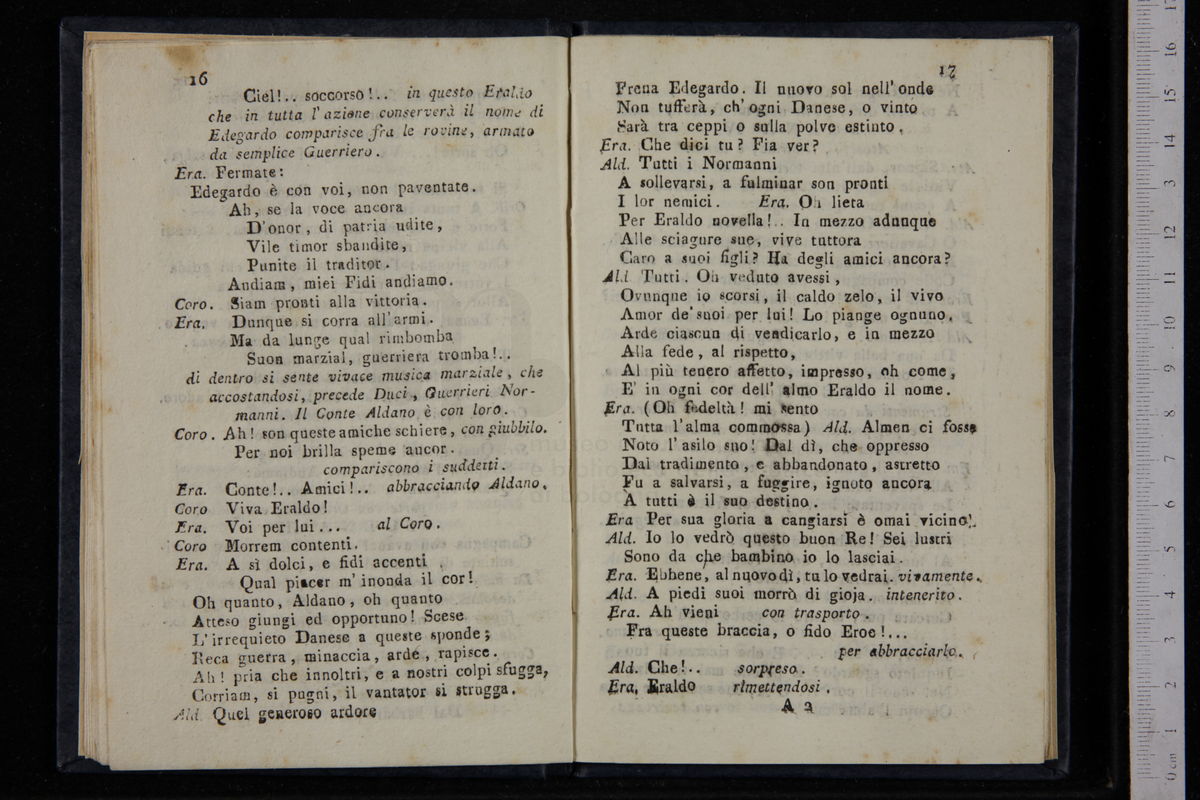 16
Ciel!.. soccorso!.. in questo Eraldo
che in tutta l'azione conserverà il nome di
Edegardo comparisce fra le rovine, armato
da semplice Guerriero.
Era. Fermate:
Edegardo è con voi, non paventate.
Ah, se la voce ancora
D'onor, di patria udite,
Vile timor sbandite,
Punite il traditor.
Andiam, miei Fidi andiamo.
Coro. Siam pronti alla vittoria.
Era. Dunque si corra all'armi.
Ma da lunge qual rimbomba
Suon marzial, guerriera tromba!..
di dentro si sente vivace musica marziale, che
accostandosi, precede Duci, Guerrieri Nor-
manni. Il Conte Aldano è con loro.
Coro. Ah! son queste amiche schiere, con giubbilo.
Per noi brilla speme ancor.
compariscono i suddetti.
Era. Conte!.. Amici!.. abbracciando Aldano.
Coro Viva Eraldo!
Era. Voi per lui... al Coro.
Coro Morrem contenti.
Era. A sì dolci, e fidi accenti
Qual piacer m'inonda il cor!
Oh quanto, Aldano, oh quanto
Atteso giungi ed opportuno! Scese
L'irrequieto Danese a queste sponde;
Reca guerra, minaccia, arde, rapisce.
Ah! pria che innoltri, e a nostri colpi sfugga,
Corriam, si pugni, il vantator si strugga.
Ald. Quel generoso ardore
17
Frena Edegardo. Il nuovo sol nell'onde
Non tufferà, ch'ogni Danese, o vinto
Sarà tra ceppi o sulla polve estinto.
Era. Che dici tu? Fia ver?
Ald. Tutti i Normanni
A sollevarsi, a fulminar son pronti
I lor nemici. Era. Oh lieta
Per Eraldo novella!.. In mezzo adunque
Alle sciagure sue, vive tuttora
Caro a suoi figli? Ha degli amici ancora?
Ald Tutti. Oh veduto avessi,
Ovunque io scorsi, il caldo zelo, il vivo
Amor de'suoi per lui! Lo piange ognuno,
Arde ciascun di vendicarlo, e in mezzo
Alla fede, al rispetto,
Al più tenero affetto, impresso, oh come,
E' in ogni cor dell' almo Eraldo il nome.
Era. (Oh fedeltà! mi sento
Tutta l'alma commossa) Ald. Almen ci fosse
Noto l'asilo suo! Dal dì, che oppresso
Dal tradimento, e abbandonato, astretto
Fu a salvarsi, a fuggire, ignoto ancora
A tutti è il suo destino.
Era Per sua gloria a cangiarsi è omai vicino!
Ald. Io lo vedrò questo buon Re! Sei lustri
Sono da che bambino io lo lasciai.
Era. Ebbene, al nuovo dì, tu lo vedrai. vivamente.
Ald. A piedi suoi morrò di gioja. intenerito.
Era. Ah vieni con trasporto.
Fra queste braccia, o fido Eroe!...
per abbracciarlo.
Ald. Che!.. sorpreso.
Era, Eraldo rimettendosi.
A 2